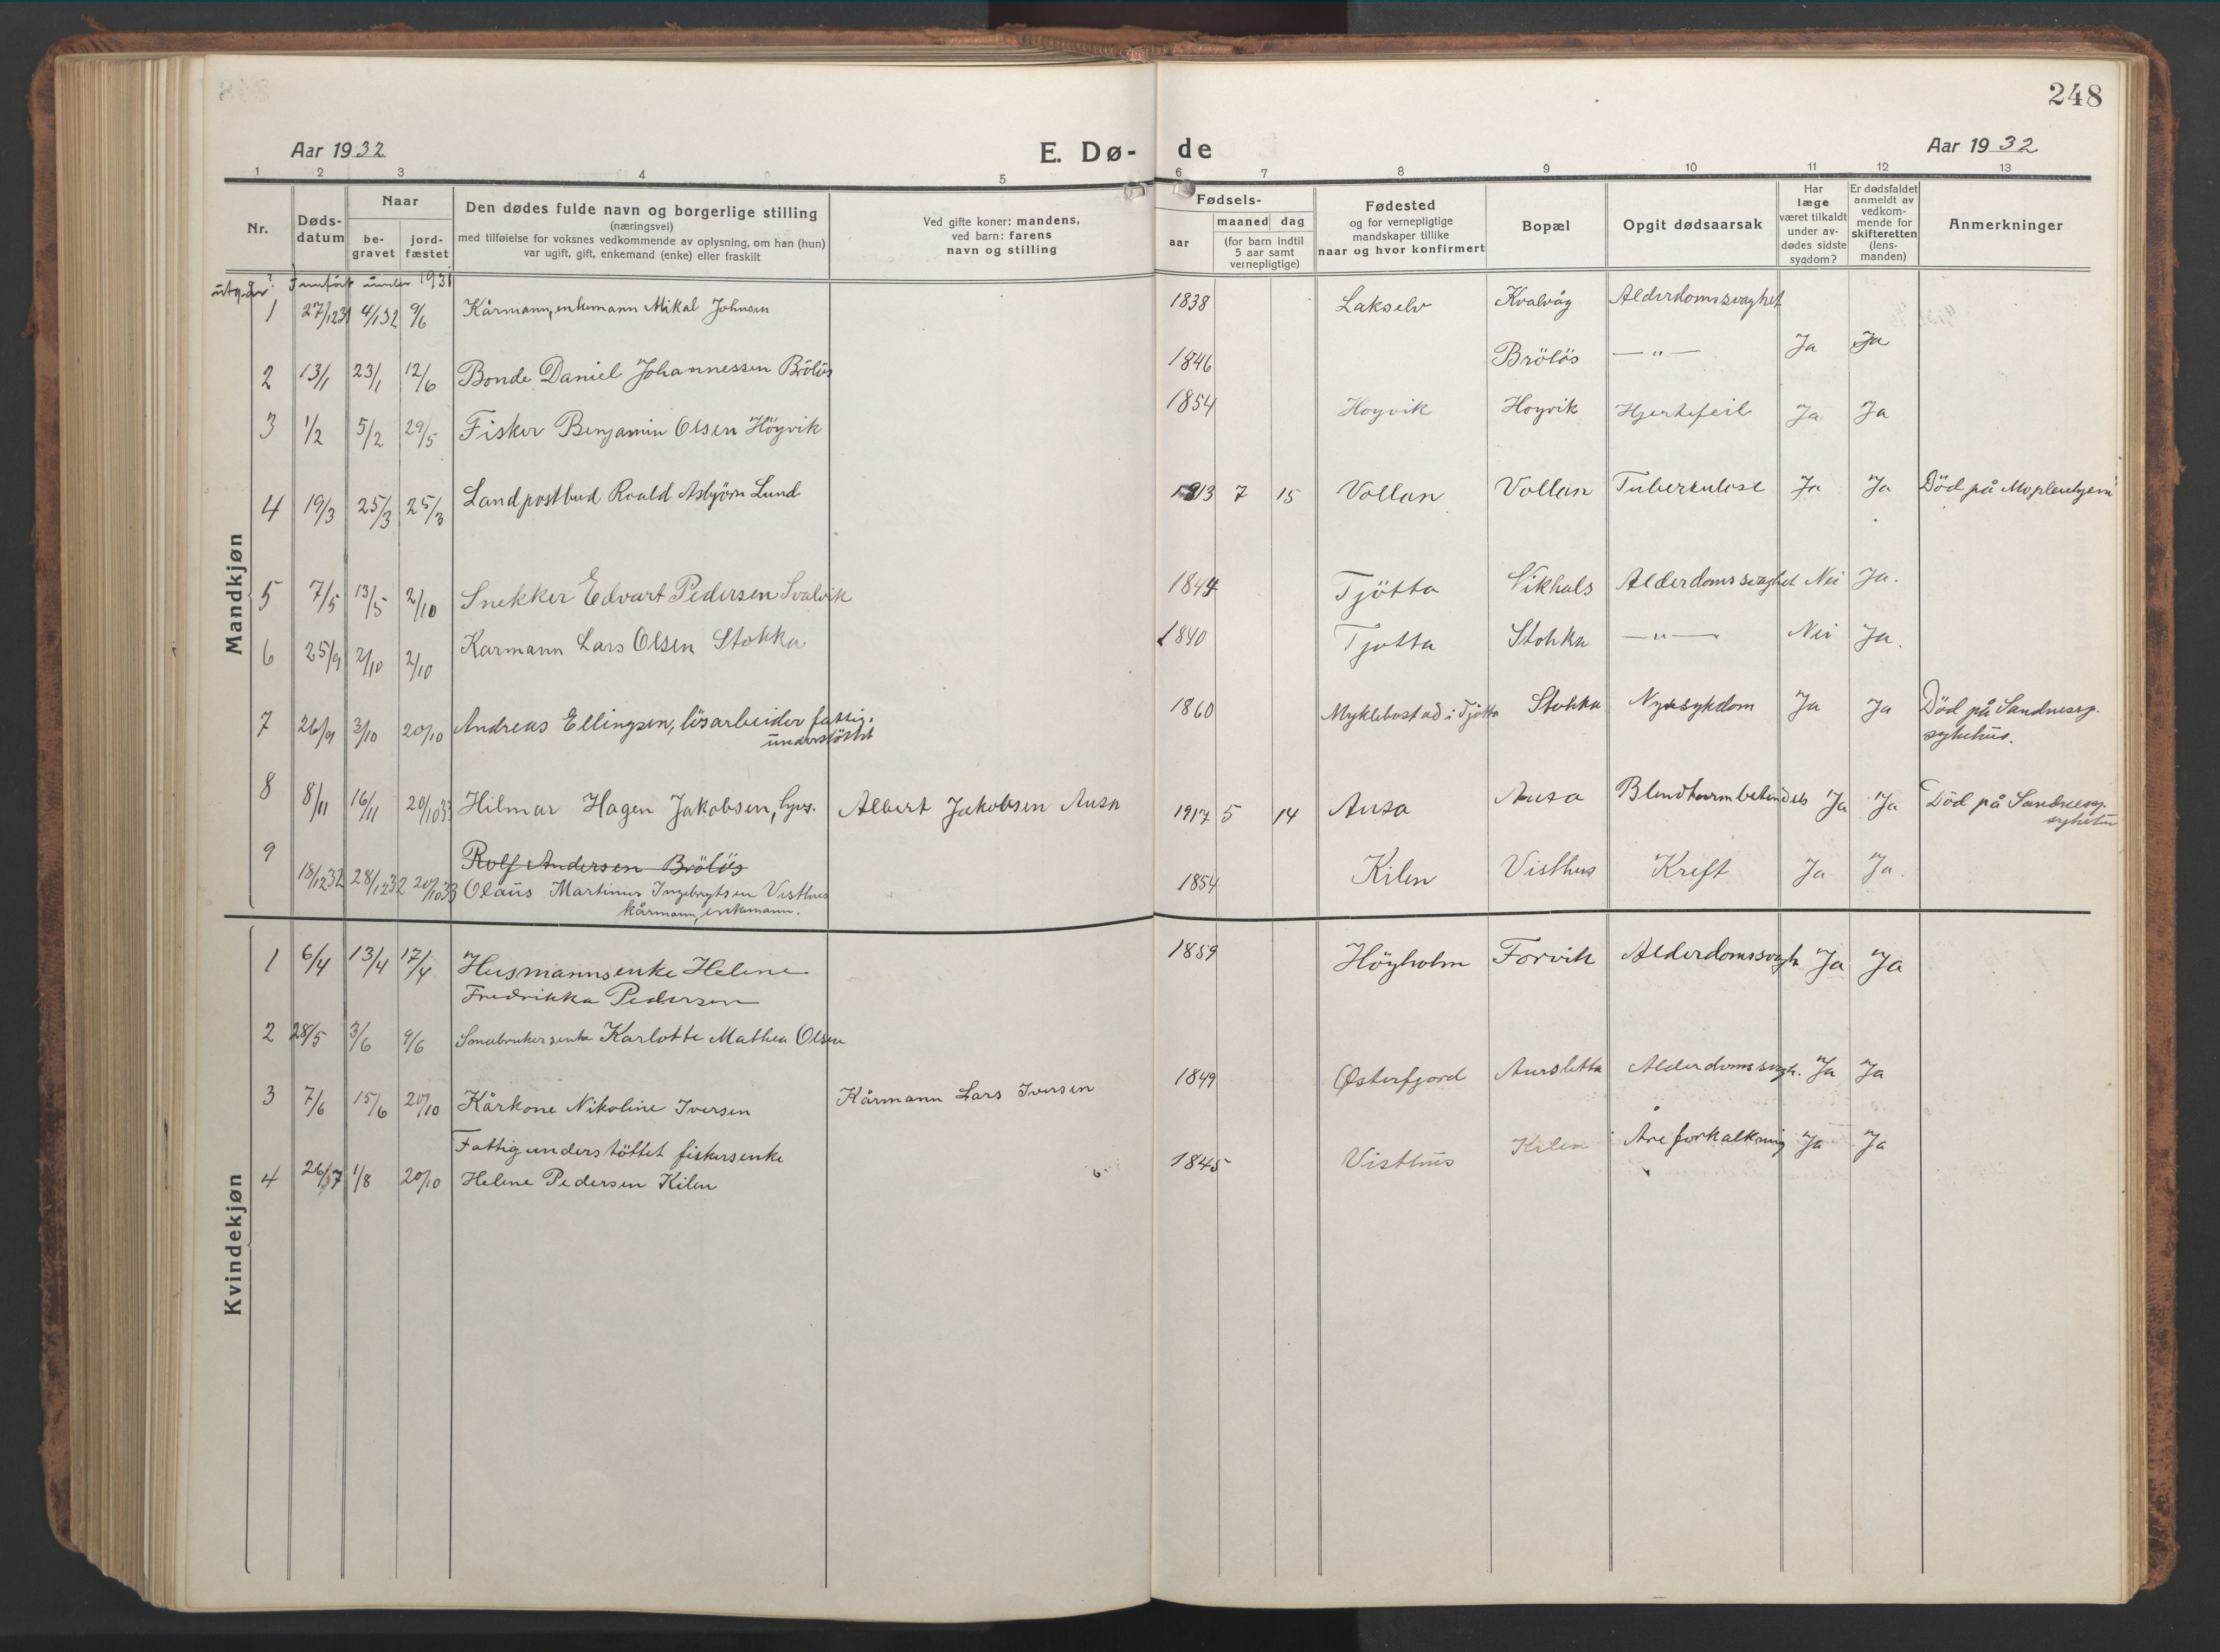 248
Aar 1932
E. Dø- de
Aar 1932
1 2 3 4 5 6 7 8 9 10 11 12 13
Nr.
Døds-
datum
Naar
be-
gravet
jord-
fæstet
Den dødes fulde navn og borgerlige stilling
(næringsvei)
med tilføielse for voksnes vedkommende av oplysning, om han (hun)
var ugift, gift, enkemand (enke) eller fraskilt
Ved gifte koner: mandens,
ved barn: farens
navn og stilling
Fødsels-
aar
maaned dag
(for barn indtil
5 aar samt
vernepligtige)
Fødested
og for vernepligtige
mandskaper tillike
naar og hvor konfirmert
Bopæl
Opgit dødsaarsak
Har
læge
været tilkaldt
under av-
dødes sidste
sygdom?
Er dødsfaldet
anmeldt av
vedkom-
mende for
skifteretten
(lens-
manden)
Anmerkninger
Mandkjøn
utgår! Innført under 1931
1 27/1231 4/132 9/6 Kårmann, enkemann Mikal Johnsen 1838 Lakselv Kvalvåg Alderdomssvaghet
2 13/1 23/1 12/6 Bonde Daniel Johannessen Brölös 1846 Brölös —"— Ja Ja
3 1/2 5/2 29/5 Fisker Benjamin Olsen Höyvik 1854 Hoyvik Hoyvik Hjertefeil Ja Ja
4 19/3 25/3 25/3 Landpostbud Roald Asbjörn Lund 1913 7 15 Vollan Vollan Tuberkulose Ja Ja Död på Mopleiehjem
5 7/5 13/5 2/10 Snekker Edvart Pedersen Svalvik 1844 Tjötta Vikhals Alderdomssvaghet Nei Ja.
6 25/9 2/10 2/10 Karmann Lars Olsen Stokka 1840 Tjotta Stokka —"— Nei Ja.
7 26/9 3/10 20/10 Andreas Ellingsen, lösarbeider fattig.
understöttet 1860 Myklebostad i Tjötta Stokka Nyresykdom Ja Ja Död på Sandnessj.
sykehus.
8 8/11 16/11 20/1033 Hilmar Hagen Jakobsen, Albert Jakobsen Ausa 1917 5 14 Ausa Ausa Blindtarmbetendels Ja Ja Död på Sandnessj.
9 Rolf Andersen Brölös
18/1232 28/1232 20/1033 Olaus Martinus Ingebrigtsen Visthus 1854 Kilen Visthus Kreft Ja Ja.
kårmann, enkemann.
Kvindekjøn
1 6/4 13/4 17/4 Husmannsenke Helene 1859 Höyholm Forvik Alderdomssvagh Ja Ja
Fredrikka Pedersen
2 28/5 3/6 9/6 Småbrukersenke Karlotte Mathea Olsen 1849 Østerfjord Aursletta Alderdomssvagh. Ja Ja
3 7/6 15/6 20/10 Kårkone Nikoline Iversen Kårmann Lars Iversen 1845 Visthus Kilen Åreforkalkning Ja Ja
Fattigunderstöttet fiskersenke
4 26/7 1/8 20/10 Helene Pedersen Kilen